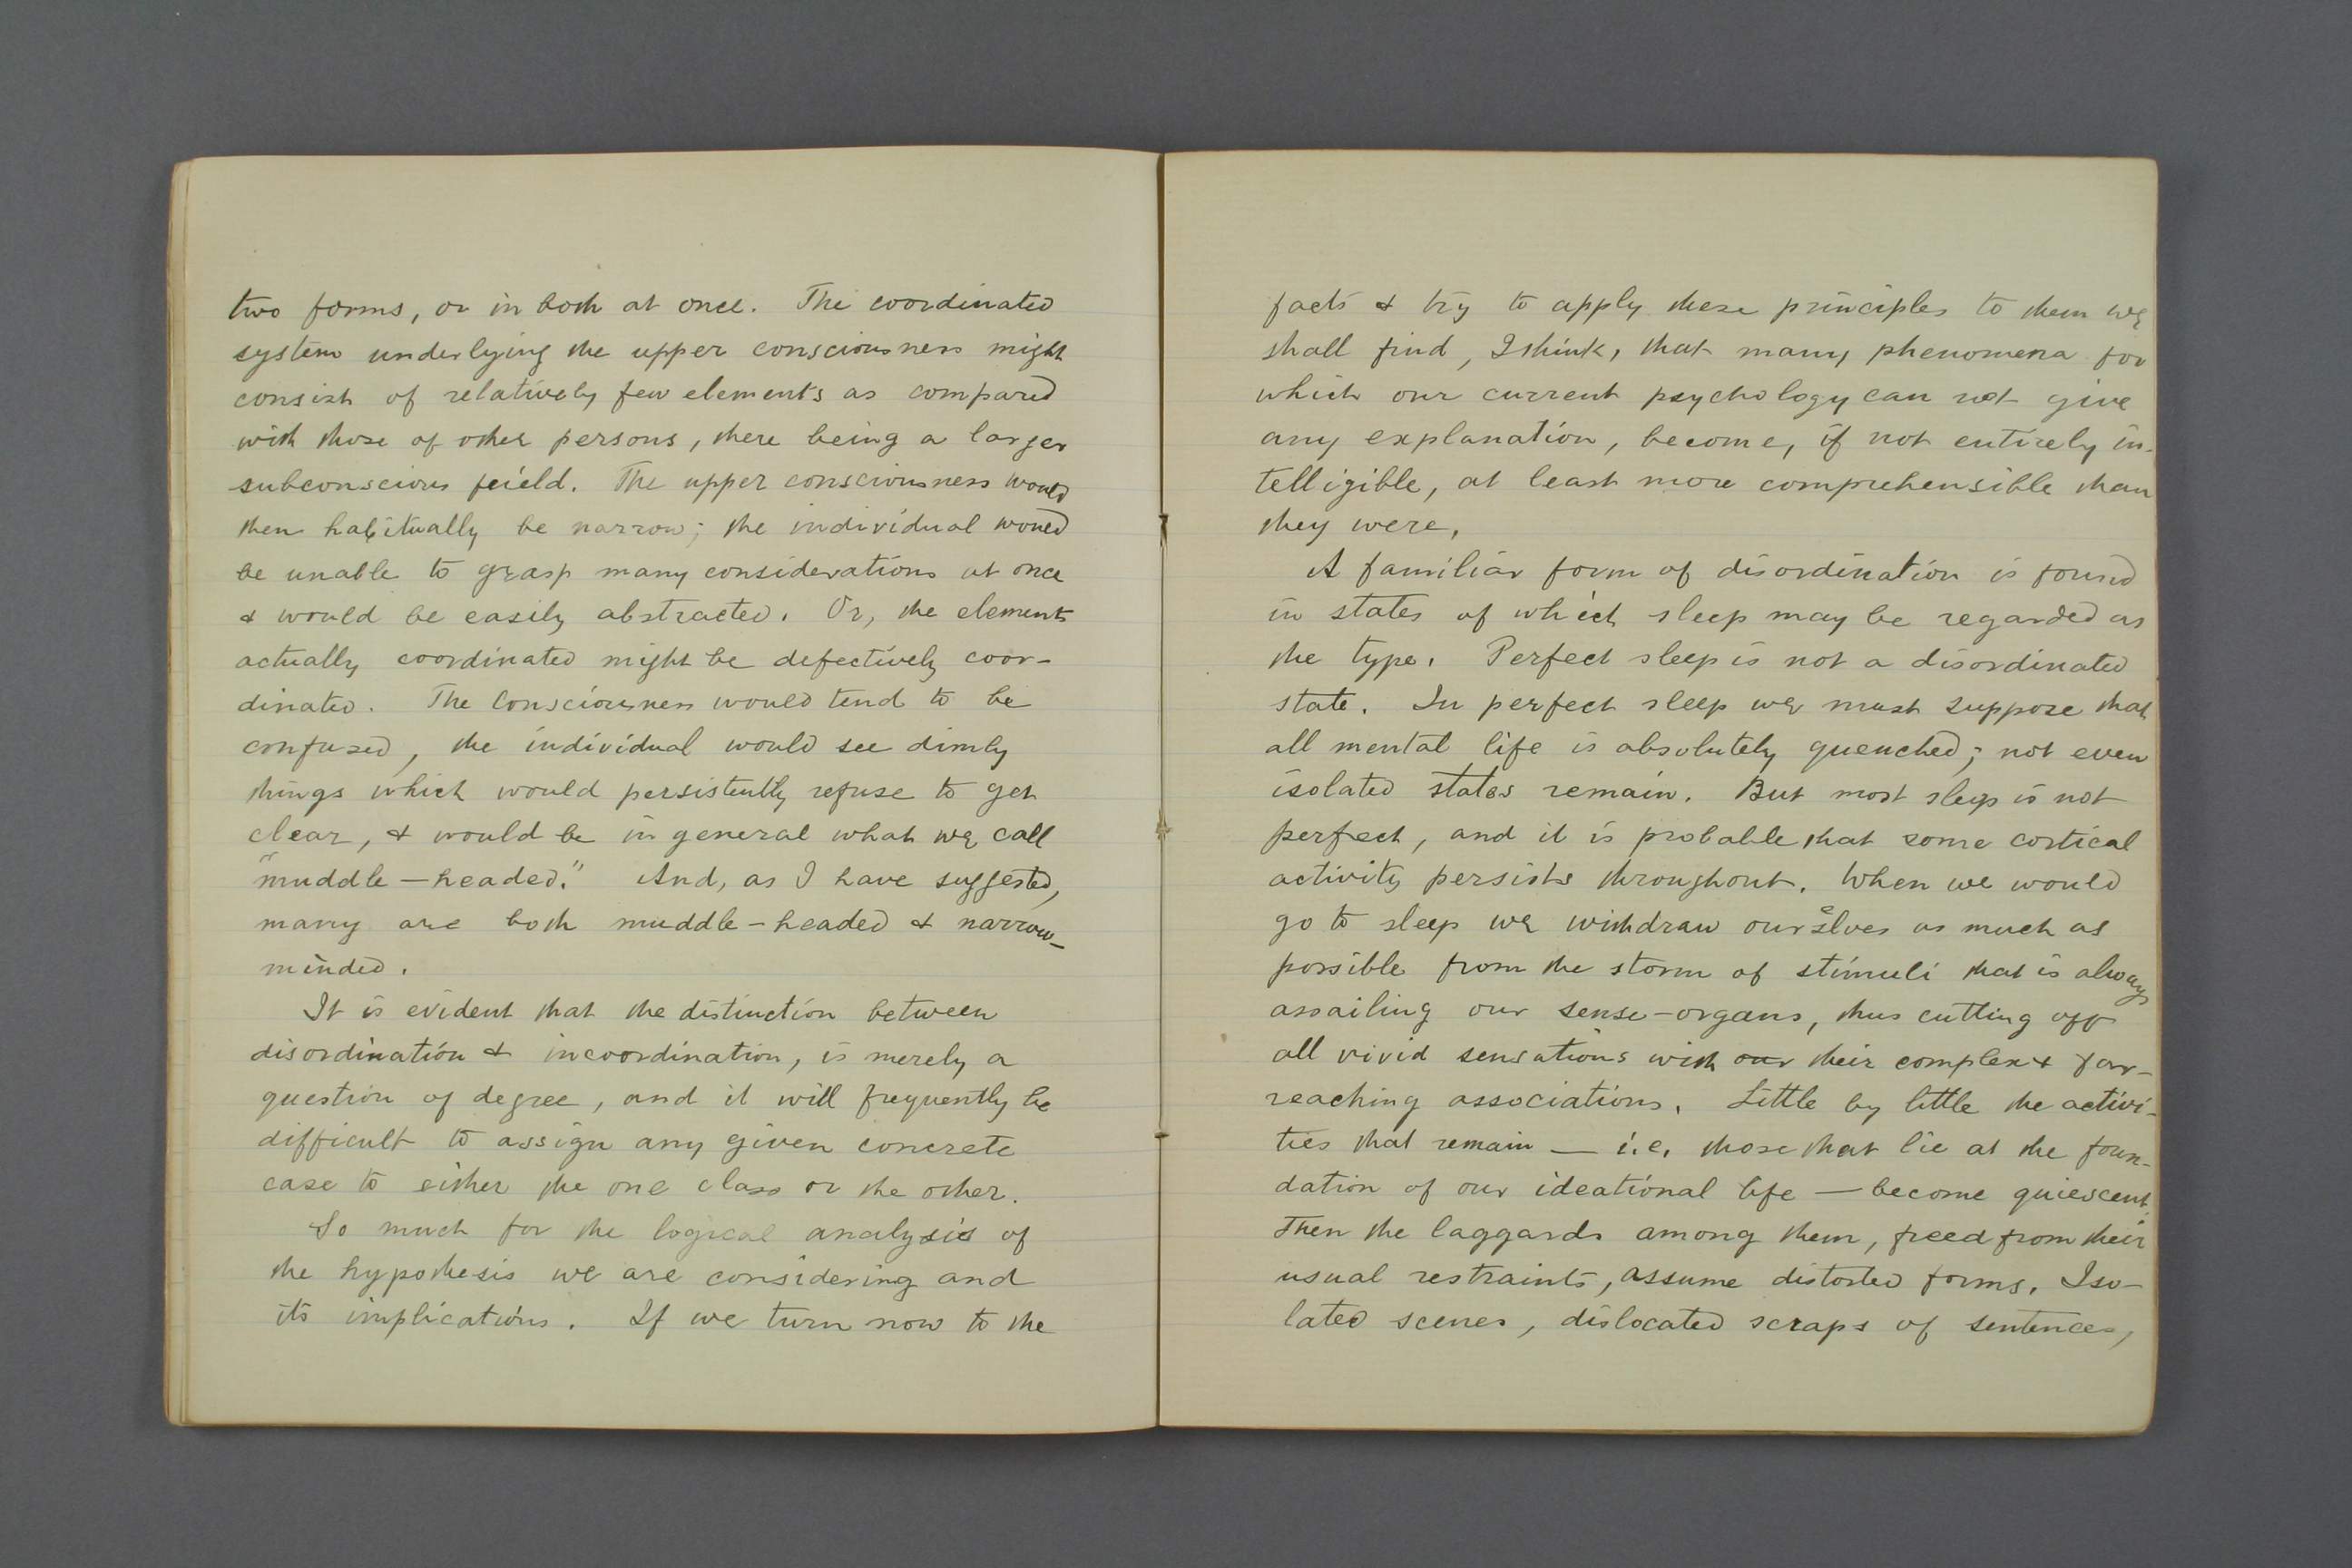 two forms, or in both at once. The coordinated
system underlying the upper consciousness might
consist of relatively few elements as compared
with those of other persons, there being a larger
subconscious feield. The upper consciousness would
then habitually be narrow; the individual would
be unable to grasp many considerations at once
& would be easily abstracted. Or, the elements
actually coordinated might be defectively coor-
dinated. The consciousness would tend to be
confused, the individual would see dimly
things which would persistently refuse to get
clear, & would be in general what we call
"muddle-headed." And, as I have suggested,
many are both muddle-headed & narrow-
minded.
It is evident that the distinction between
disordination & incoordination, is merely a
question of degree, and it will frequently be
difficult to assign any given concrete
case to either the one class or the other.
So much for the logical analysis of
the hypothesis we are considering and
its implications. If we turn now to the
facts & try to apply these principles to them we
shall find, I think, that many phenomena for
which our current psychology can not give
any explanation, become, if not entirely in-
telligible, at least more comprehensible than
they were.
A familiar form of disordination is found
in states of which sleep may be regarded as
the type. Perfect sleep is not a disordinated
state. In perfect sleep we must suppose that
all mental life is absolutely quenched; not even
isolated states remain. But most sleep is not
perfect, and it is probable that some cortical
activity persists throughout. When we would
go to sleep we withdraw ourselves as much as
possible from the storm of stimuli that is always
assailing our sense-organs, thus cutting off
all vivid sensations with our their complex & far-
reaching associations. Little by little the activi-
ties that remain — i.e. those that lie at the foun-
dation of our ideational life — become quiescent.
Then the laggards among them, freed from their
usual restraints, assume distorted forms. Iso-
lated scenes, dislocated scraps of sentences,